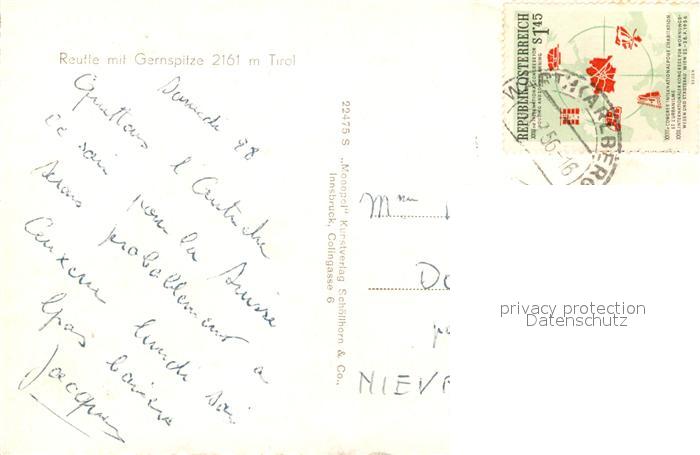 Reutte mit Gernspitze 2161 m Tirol
Samedi 28
Quittons l'Autriche
ce soir pour la Suisse
serons probablement à
Auxerre lundi soir
Gros baisers
Jacques
22475 S „Monopol" Kunstverlag Schöllhorn & Co.,
Innsbruck, Colingasse 6
REPUBLIK ÖSTERREICH
S 1.45
56-16
ARLBERG
Mme
Do
NIEVR
privacy protection
Datenschutz